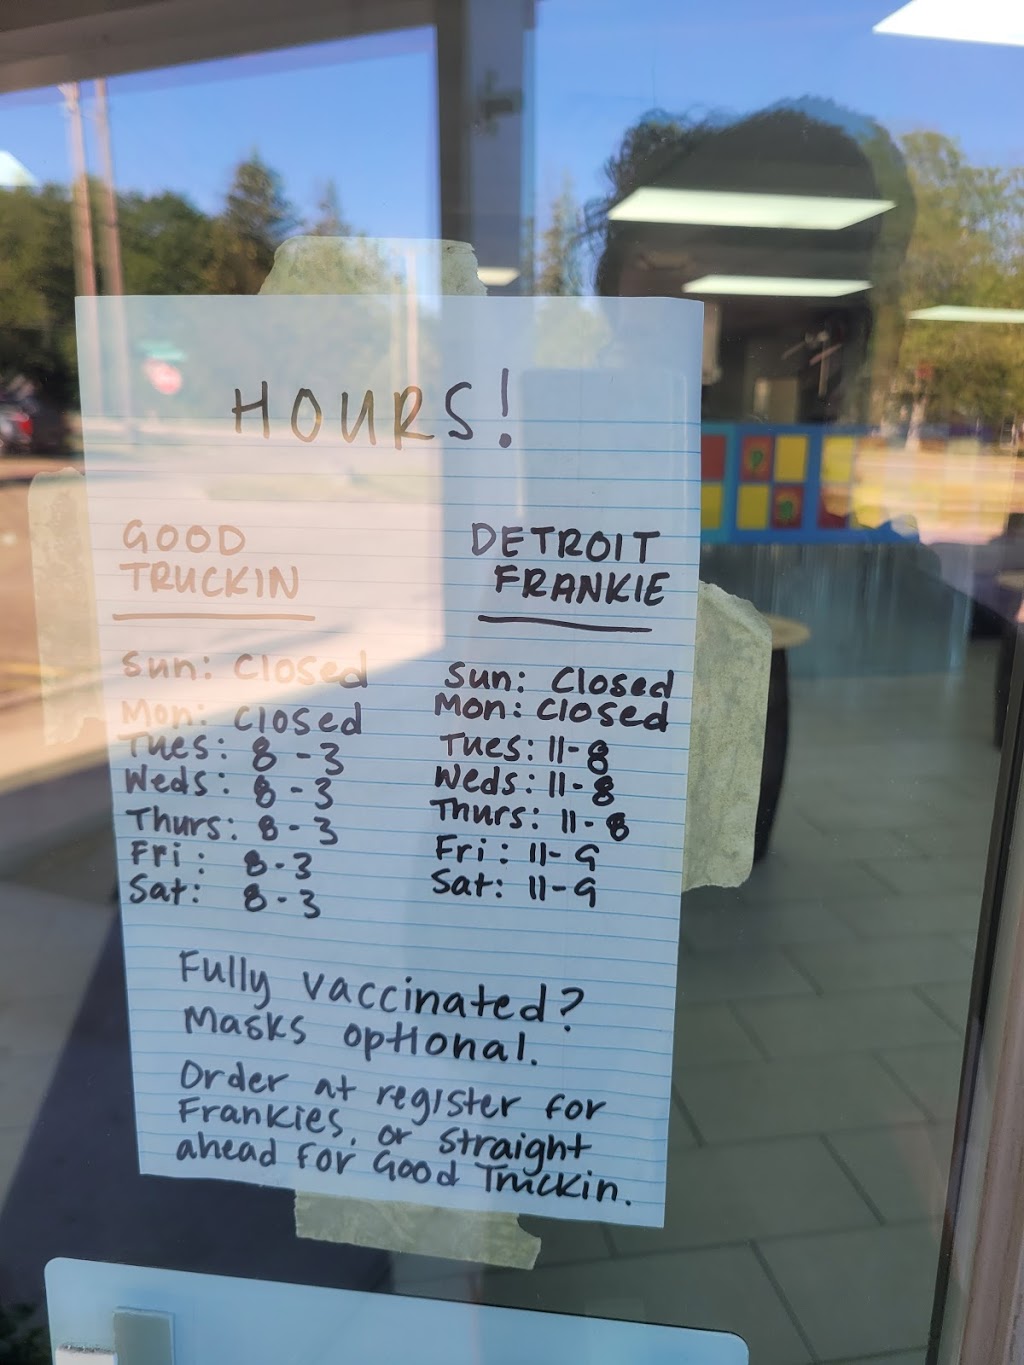 HOURS!
GOOD
TRUCKIN
Sun: Closed
Mon: Closed
Tues: 8-3
Weds: 8-3
Thurs: 8-3
Fri: 8-3
Sat: 8-3
DETROIT
FRANKIE
Sun: Closed
Mon: Closed
Tues: 11-8
Weds: 11-8
Thurs: 11-8
Fri: 11-9
Sat: 11-9
Fully vaccinated?
Masks optional.
Order at register for
Frankies, or straight
ahead for Good Truckin.